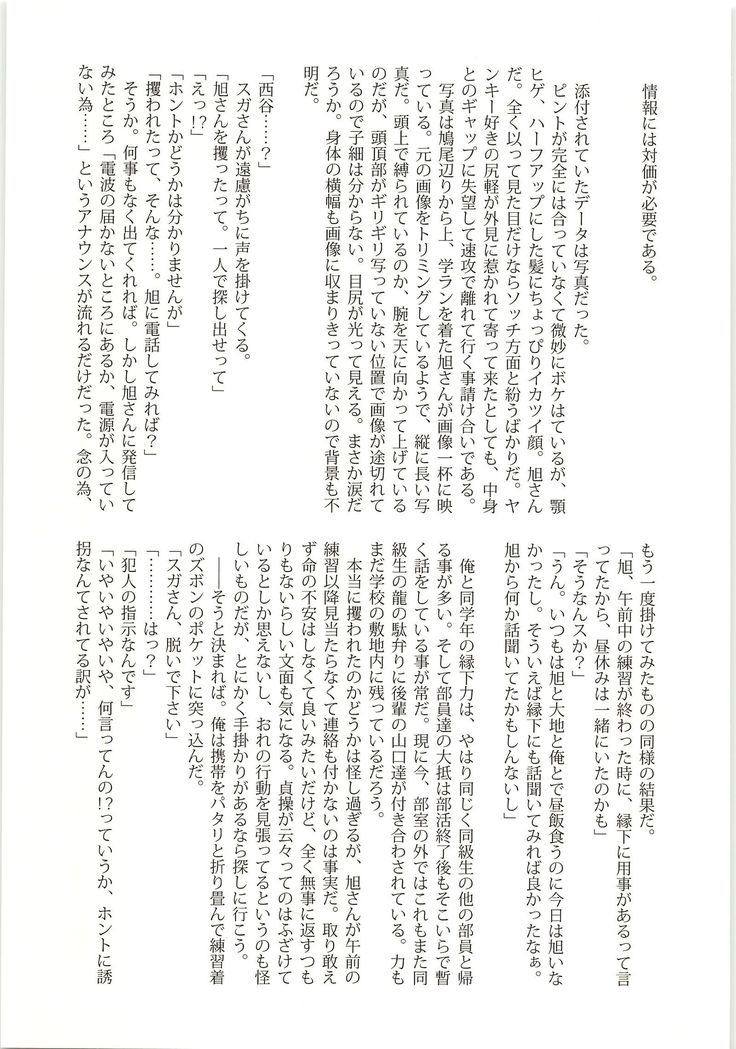 情報には対価が必要である。
添付されていたデータは写真だった。
ピントが完全には合っていなくて微妙にボケはているが、顎
ヒゲ、ハーフアップにした髪にちょっぴりイカツイ顔。旭さん
だ。全く以って見た目だけならソッチ方面と紛うばかりだ。ヤ
ンキー好きの尻軽が外見に惹かれて寄って来たとしても、中身
とのギャップに失望して速攻で離れて行く事請け合いである。
写真は鳩尾辺りから上、学ランを着た旭さんが画像一杯に映
っている。元の画像をトリミングしているようで、縦に長い写
真だ。頭上で縛られているのか、腕を天に向かって上げている
のだが、頭頂部がギリギリ写っていない位置で画像が途切れて
いるので子細は分からない。目尻が光って見える。まさか涙だ
ろうか。身体の横幅も画像に収まりきっていないので背景も不
明だ。
「西谷……？」
スガさんが遠慮がちに声を掛けてくる。
「旭さんを攫ったって。一人で探し出せって」
「えっ!?」
「ホントかどうかは分かりませんが」
「攫われたって、そんな……。旭に電話してみれば？」
そうか。何事もなく出てくれれば。しかし旭さんに発信して
みたところ「電波の届かないところにあるか、電源が入ってい
ない為……」というアナウンスが流れるだけだった。念の為、
もう一度掛けてみたものの同様の結果だ。
「旭、午前中の練習が終わった時に、縁下に用事があるって言
ってたから、昼休みは一緒にいたのかも」
「そうなんスか？」
「うん。いつもは旭と大地と俺とで昼飯食うのに今日は旭いな
かったし。そういえば縁下にも話聞いてみれば良かったなぁ。
旭から何か話聞いてたかもしんないし」
俺と同学年の縁下力は、やはり同じく同級生の他の部員と帰
る事が多い。そして部員達の大抵は部活終了後もそこいらで暫
く話をしている事が常だ。現に今、部室の外ではこれもまた同
級生の龍の駄弁りに後輩の山口達が付き合わされている。力も
まだ学校の敷地内に残っているだろう。
本当に攫われたのかどうかは怪し過ぎるが、旭さんが午前の
練習以降見当たらなくて連絡も付かないのは事実だ。取り敢え
ず命の不安はしなくて良いみたいだけど、全く無事に返すつも
りもないらしい文面も気になる。貞操が云々ってのはふざけて
いるとしか思えないし、おれの行動を見張ってるというのも怪
しいものだが、とにかく手掛かりがあるなら探しに行こう。
――そうと決まれば。俺は携帯をパタリと折り畳んで練習着
のズボンのポケットに突っ込んだ。
「スガさん、脱いで下さい」
「…………はっ？」
「犯人の指示なんです」
「いやいやいやいや、何言ってんの!?っていうか、ホントに誘
拐なんてされてる訳が……」